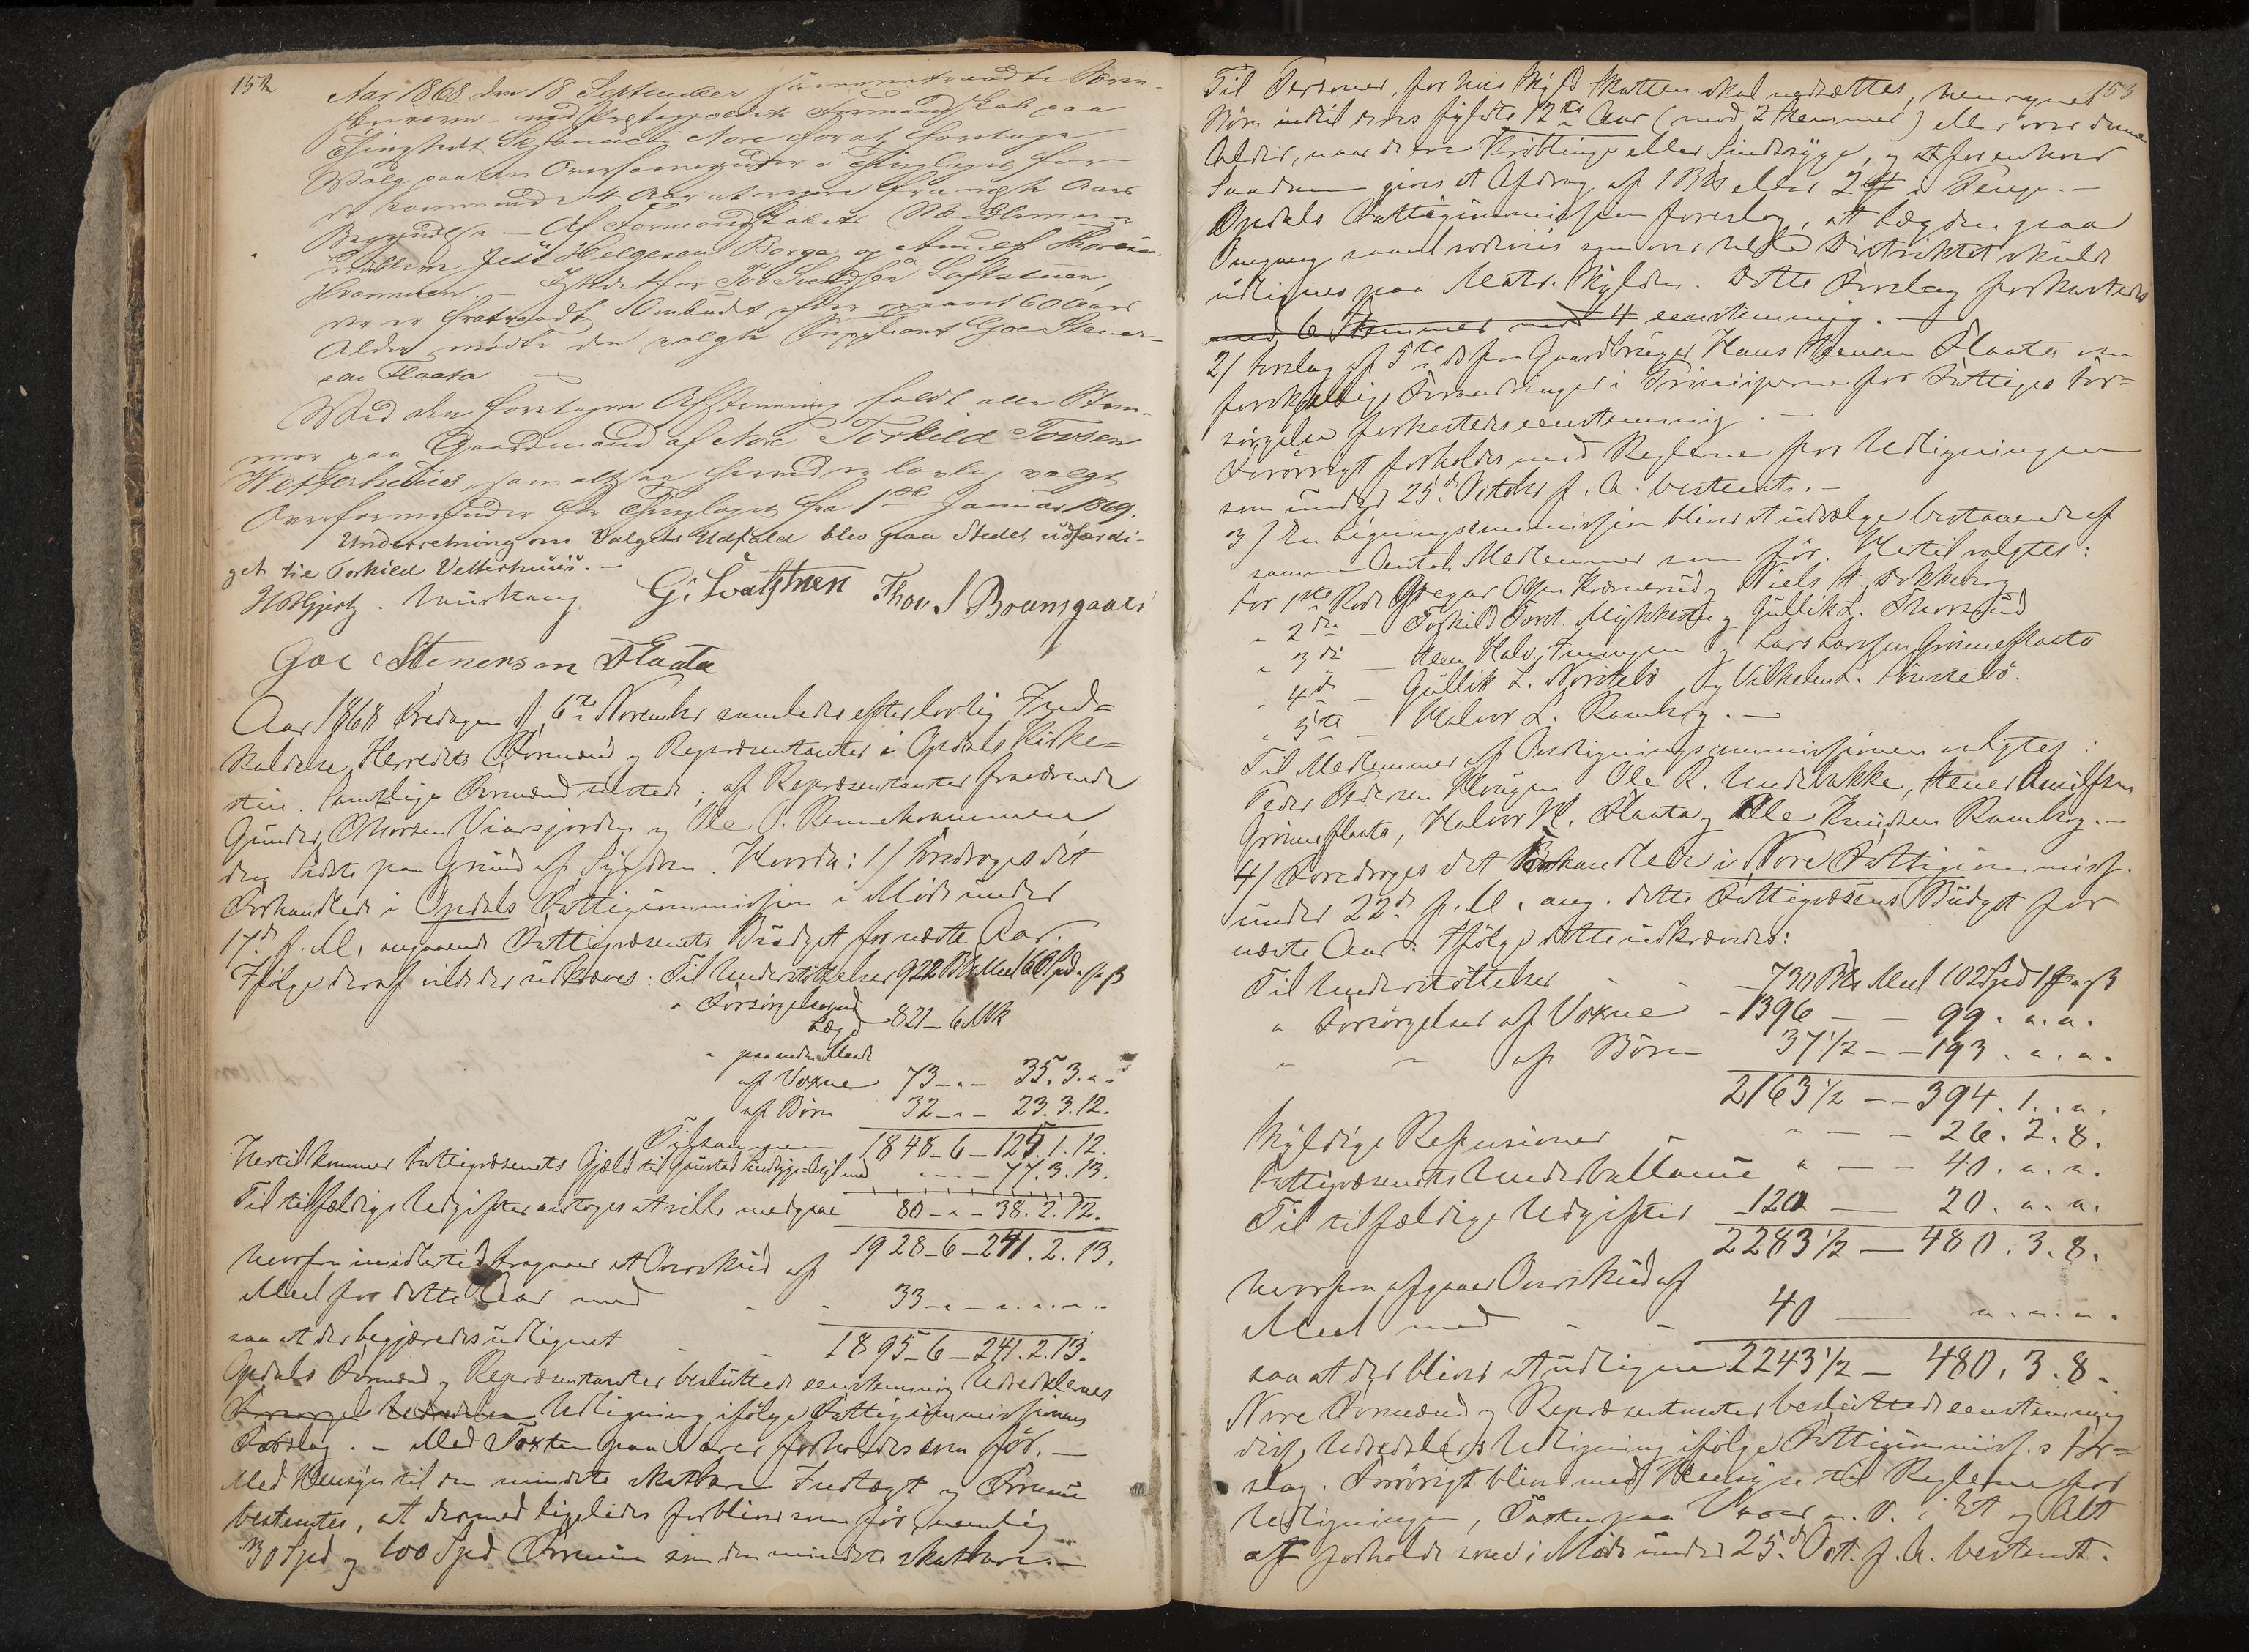 152
Aar 1868 den 18 September sammentraadte Soren-
skriveren med Formandskab paa
Thingstedt Skjønne i Nore for at foretage
Valg paa en Overformynder i Thinglaget for
de kommende 4 Aar at regne fra næste Aars
Begyndelse. - Af Formandskabets Medlemmer
Helgesen Borge og Thorsen
Hvammen. - Istedetfor Tov Svendsen Loftstuen,
der er fratraadt Ombudet efter opnaaet 60 Aars
Alder, mødte den valgte Suppleant Goe Stener-
sen Flaata
Ved den foretagne Afstemning faldt alle Stem-
mer paa Gaardmand af Nore Torkild Tovsen
Vetterhuus, som altsaa lovlig valgt
Overformynder for Thinglaget fra 1ste Januar 1869.
Underretning om Valgets Udfald blev paa Stedet udfærdi-
get til Torkild Vetterhuus. -
Goe Stenersen Flaata
Aar 1868 Fredagen d. 6te November samledes efter lovlig Ind-
kaldelse Herredets Formænd og Repræsentanter i Opdals Kirke-
stue. Samtlige Formænd tilstede; af Repræsentanter fraværende
Gunder O Morsen Viersjorden og Ole P. Rennehvammen,
den sidste paa Grund af Sygdom. Hvorda: 1/ Foredroges det
Forhandlede i Opdals Fattigcommission i Møde under
17d f. M. angaaende Fattigvæsenets Budget for næste Aar.
Ifølge deraf vilde der udkræves: Til Understøttelser 922 Bk Meel 66 Spd
" Forsørgelse ved
Lægd 821 - 6 Mk
" paa anden Maade
af Voxne 73 - " - 35. 3. "
af Børn 32 - " - 23. 3. 12.
Tilsammen 1848 - 6 - 125. 1. 12.
Hertil kommer Fattigvæsenets Gjæld til Gaustad Sindsyge-Asyl med " - - - 77. 3. 13.
Til tilfældige Udgifter antages at ville medgaae 80 - " - 38. 2. 12.
1928 - 6 - 241. 2. 13.
hvorfra imidlertid fragaaer et Overskud af
Meel for dette Aar med 33 - " - " . " . "
saa at der begjæredes udlignet 1895 - 6 - 241. 2. 13.
Opdals Formænd og Repræsentanter besluttede eenstemmig Udredelsernes
Udligning ifølge Fattigcommissionens
Forslag. - Med Taxten paa Varer forholdes som før. -
Med Hensyn til den mindste skatbare Indtægt og Formue
bestemtes, at dermed ligeledes forbliver som før, nemlig
30 Spd og 100 Spd Formue som den mindste skatbare. -
153
Til Personer, for hvis Skyld Skatten skal nedsættes, henregnes
Børn indtil deres fyldte 12te Aar (mod 2 Stemmer) eller over denne
Alder, naar de ere Krøblinge eller Sindssyge, og at for enhver
Saadan gives et Afdrag af 1 Bk eller 2 i Penge. -
Opdals Fattigcommission foreslog, at Lægden paa
Omgang saavel rodeviis som over hele Distriktet skulde
udlignes paa Matr. Skylden. Dette Forslag forkastedes
med 6 Stemmer mod 4 eenstemmig. -
2/ Forslag af 5te ds fra Gaardbruger Hans Steensen Flaata om
forskjellige Forandringer i Principerne for Fattiges For-
sørgelse forkastedes eenstemmig. -
Forøvrigt forholdes med Reglerne for Udligningen
som under 25d Octobr f. A. bestemt. -
3/ En Ligningscommission bliver at udvælge bestaaende af
samme Antal Medlemmer som før. Hertil valgtes:
For 1ste Rode Gregar Olsen Kravnerud og Niels H. Dokkeberg
" 2den - Torkild Torst. Mykkestu og Gullik L. Thorsrud
" 3die - Sten Halv. Tuningen og Lars Larsen Grøneflaata
" 4de - Gullik L. Nørstebø og Vilhelm L. Synstebø.
" 5te - Halvor L. Ramberg. -
Til Medlemmer af Overligningscommissionen valgtes:
Peder Pedersen Haugen, Ole R. Underbakke, Stener
Grøneflaata, Halvor H. Flaata og Ole Knudsen Ramberg. -
4/ Foredroges det Forhandlede i Nore Fattigcommiss.
under 22d f. M. ang. dette Fattigvæsens Budget for
næste Aar. Ifølge dette udkrævedes:
Til Understøttelser - 730 Bk Meel 102 Spd 1
" Forsørgelser af Voxne - 1396 - - 99. ". ".
" " af Børn 37 1/2 - - 193. ". ".
2163 1/2 - - 394. 1. ".
Skyldige Refusioner - " - - 26. 2. 8.
Fattigvæsenets Underballance " - - 40. ". ".
Til tilfældige Udgifter 120 - 20. ". ".
2283 1/2 - 480. 3. 8.
hvorfra afgaaer Overskud af
Meel med - - 40 - ". ". ".
saa at der bliver at udligne 2243 1/2 - 480. 3. 8.
Nore Formænd og Repræsentanter besluttede eenstemmig
disse Udredelsers Udligning ifølge Fattigcommiss.s For-
slag. Forøvrigt blev med Hensyn til Reglerne for
Udligningen, Taxten paa Varer m. V. i Et og Alt
at forholde som i Møde under 25d Oct. f. A. bestemt.